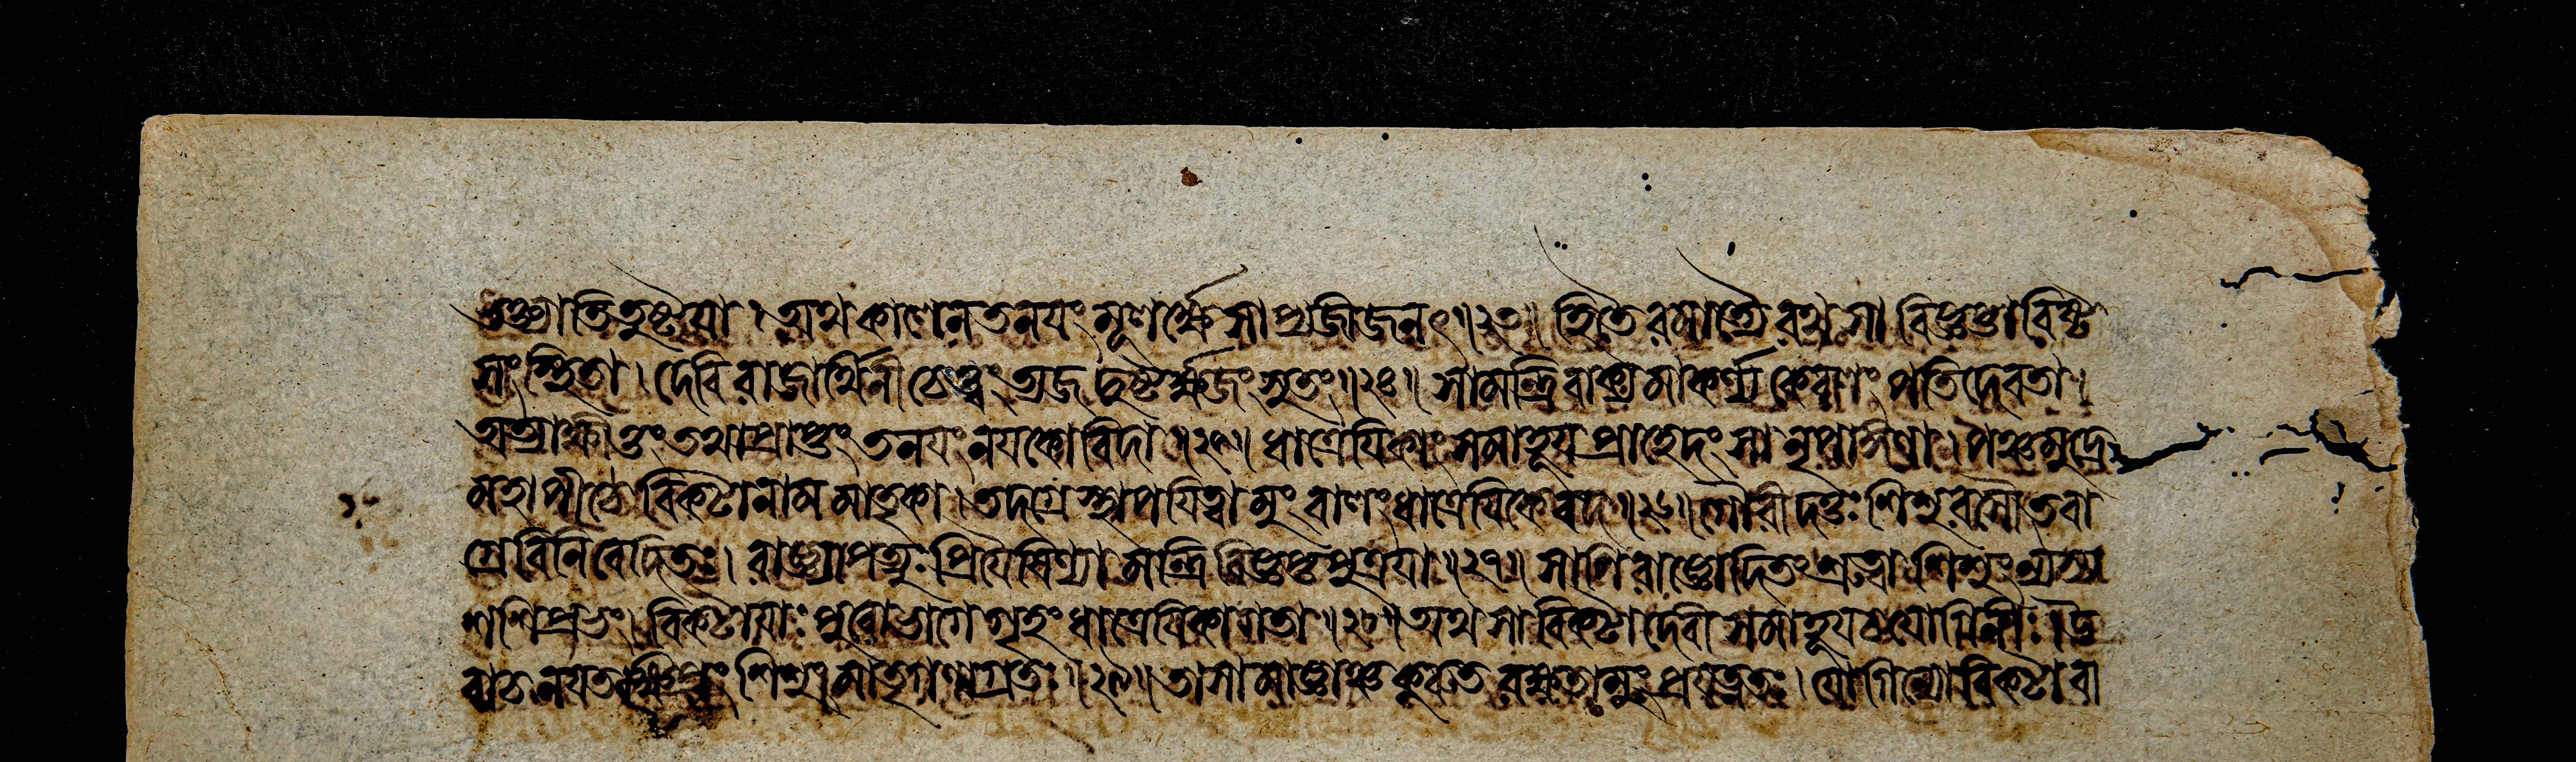 ত্যাতিতুষ্টয়া। অথ কালেন তনয়ং মূলর্ক্ষে সাপ্যজীজনৎ॥২৩॥ হিতৈরমাত্যৈরথ সা বিজ্ঞপ্তারিষ্ট
সংস্থিতা। দেবি রাজার্থিনী চেত্ত্বং ত্যজ দুষ্টর্ক্ষজং সুতং॥২৪॥ সা মন্ত্রিবাক্যমাকর্ণ্য কেবলং পতিদেবতা।
অত্যাক্ষীত্তং তথা প্রাপ্তং তনয়ং নয়কোবিদা॥২৫॥ ধাত্রেয়িকাং সমাহূয় প্রাহেদং সা নৃপাঙ্গণা। পঞ্চমুদ্রে
মহাপীঠে বিকটা নাম মাতৃকা। তদগ্রে স্থাপয়িত্বামুং বালং ধাত্রেয়িকে বদ॥২৬॥ গৌরীদত্তঃ শিশুরসৌ তবা
গ্রে বিনিবেদিতঃ। রাজ্ঞ্যা পত্যুঃ প্রিয়ৈষিণ্যা মন্ত্রিবিজ্ঞপ্ত॥২৭॥ সাপি রাজ্ঞ্যোদিতং শ্রুত্বা শিশুং ন্যস্য
শশিপ্রভং। বিকটায়াঃ পুরোভাগে গৃহং ধাত্রেয়িকা গতা॥২৮॥ অথ সা বিকটা দেবী সমাহূয় চ যোগিনীঃ। উ
বাচ নয়ত ক্ষিপ্রং শিশুং মাতৃগণাগ্রতঃ॥২৯॥ তাসামাজ্ঞাঞ্চ কুরুত রক্ষতামুং প্রযত্নতঃ। যোগিন্যো বিকটাবা